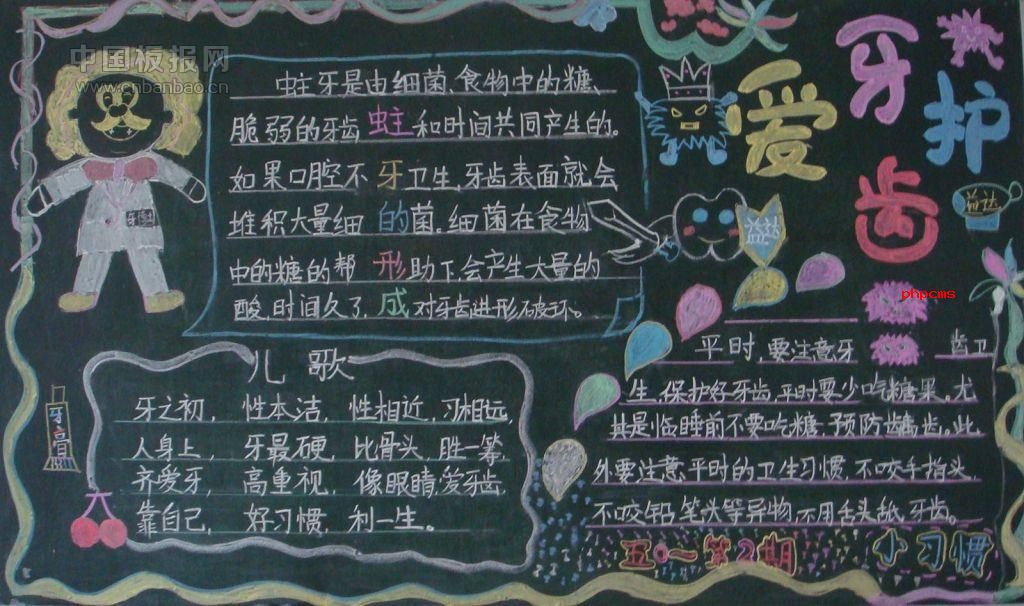 中国板报网
www.cnbanbao.cn
爱牙护齿
蛀牙是由细菌、食物中的糖、
脆弱的牙齿 蛀 和时间共同产生的。
如果口腔不 牙 卫生,牙齿表面就会
堆积大量细 的 菌。细菌在食物
中的糖的帮 形 助下,会产生大量的
酸,时间久了, 成 对牙齿进形破坏。
益达
益达
phpcms
儿 歌
牙之初, 性本洁, 性相近, 习相远,
人身上, 牙最硬, 比骨头, 胜一筹,
齐爱牙, 高重视, 像眼睛,爱牙齿,
靠自己, 好习惯, 利一生。
牙膏
平时,要注意牙 齿卫
生,保护好牙齿,平时要少吃糖果。尤
其是临睡前不要吃糖,预防龋齿。此
外要注意平时的卫生习惯,不咬手指头,
不咬铅笔头等异物,不用舌头舐牙齿。
五〇一第2期 小习惯